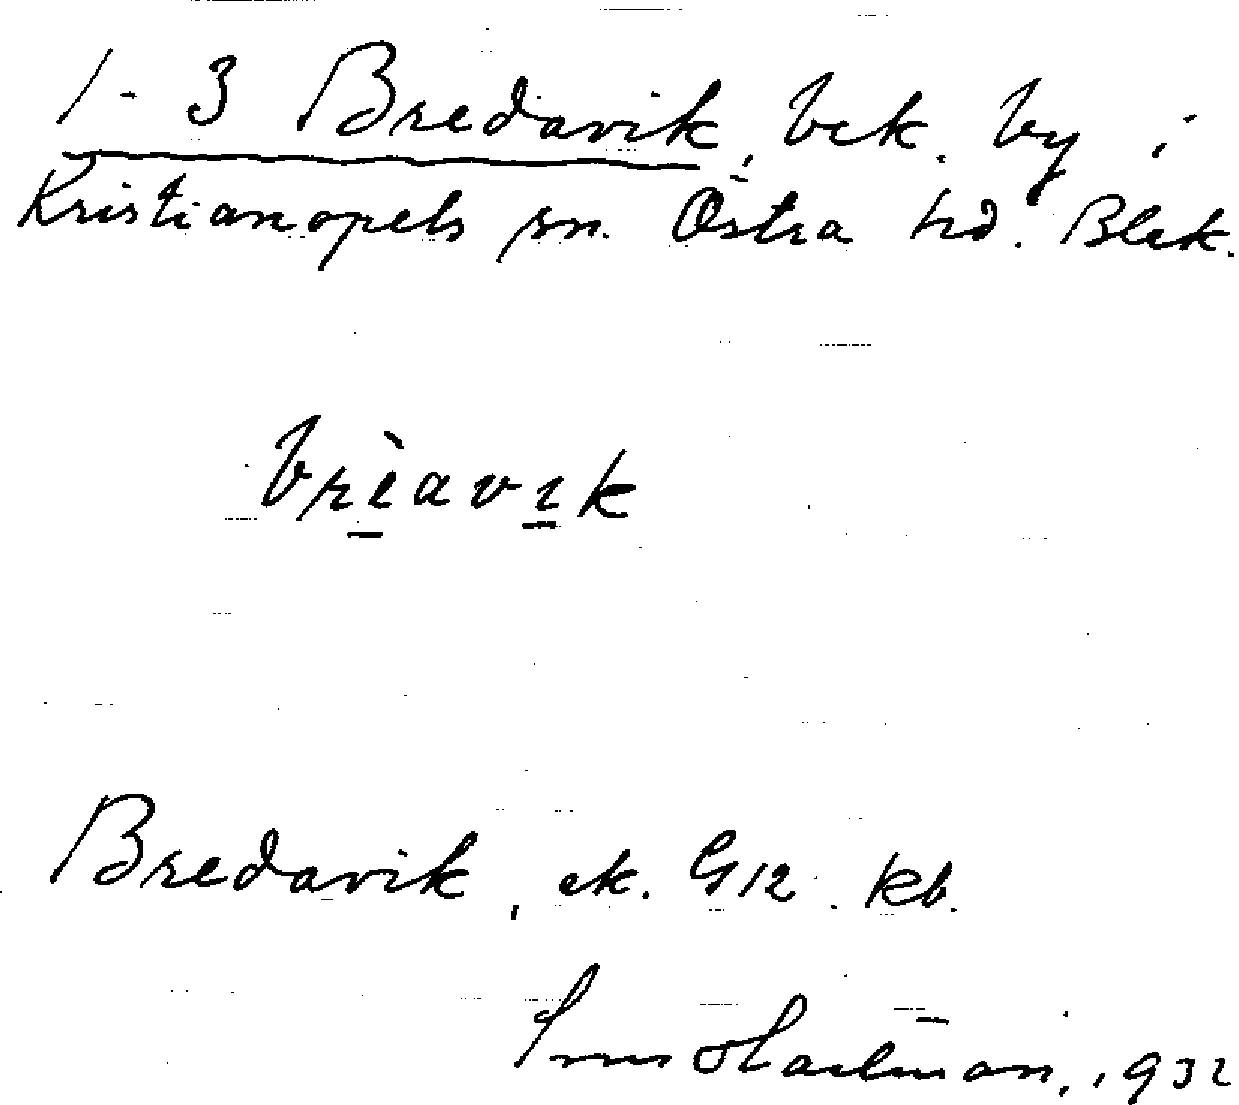 1-3 Bredavik, bek. by i
Kristianopels sn. Östra hd. Blek.
brèavik
Bredavik, ek. G12. kb.
1932